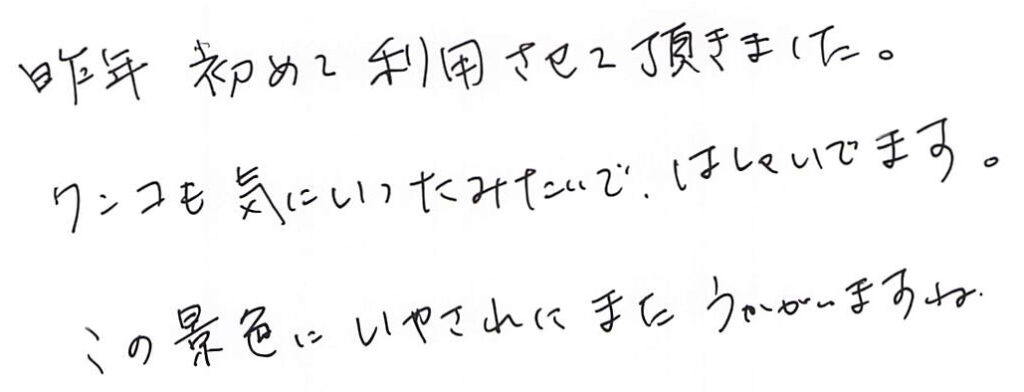 昨年 初めて利用させて頂きました。
ワンコも気にいったみたいで、はしゃいでます。
この景色にいやされにまたうかがいますね。